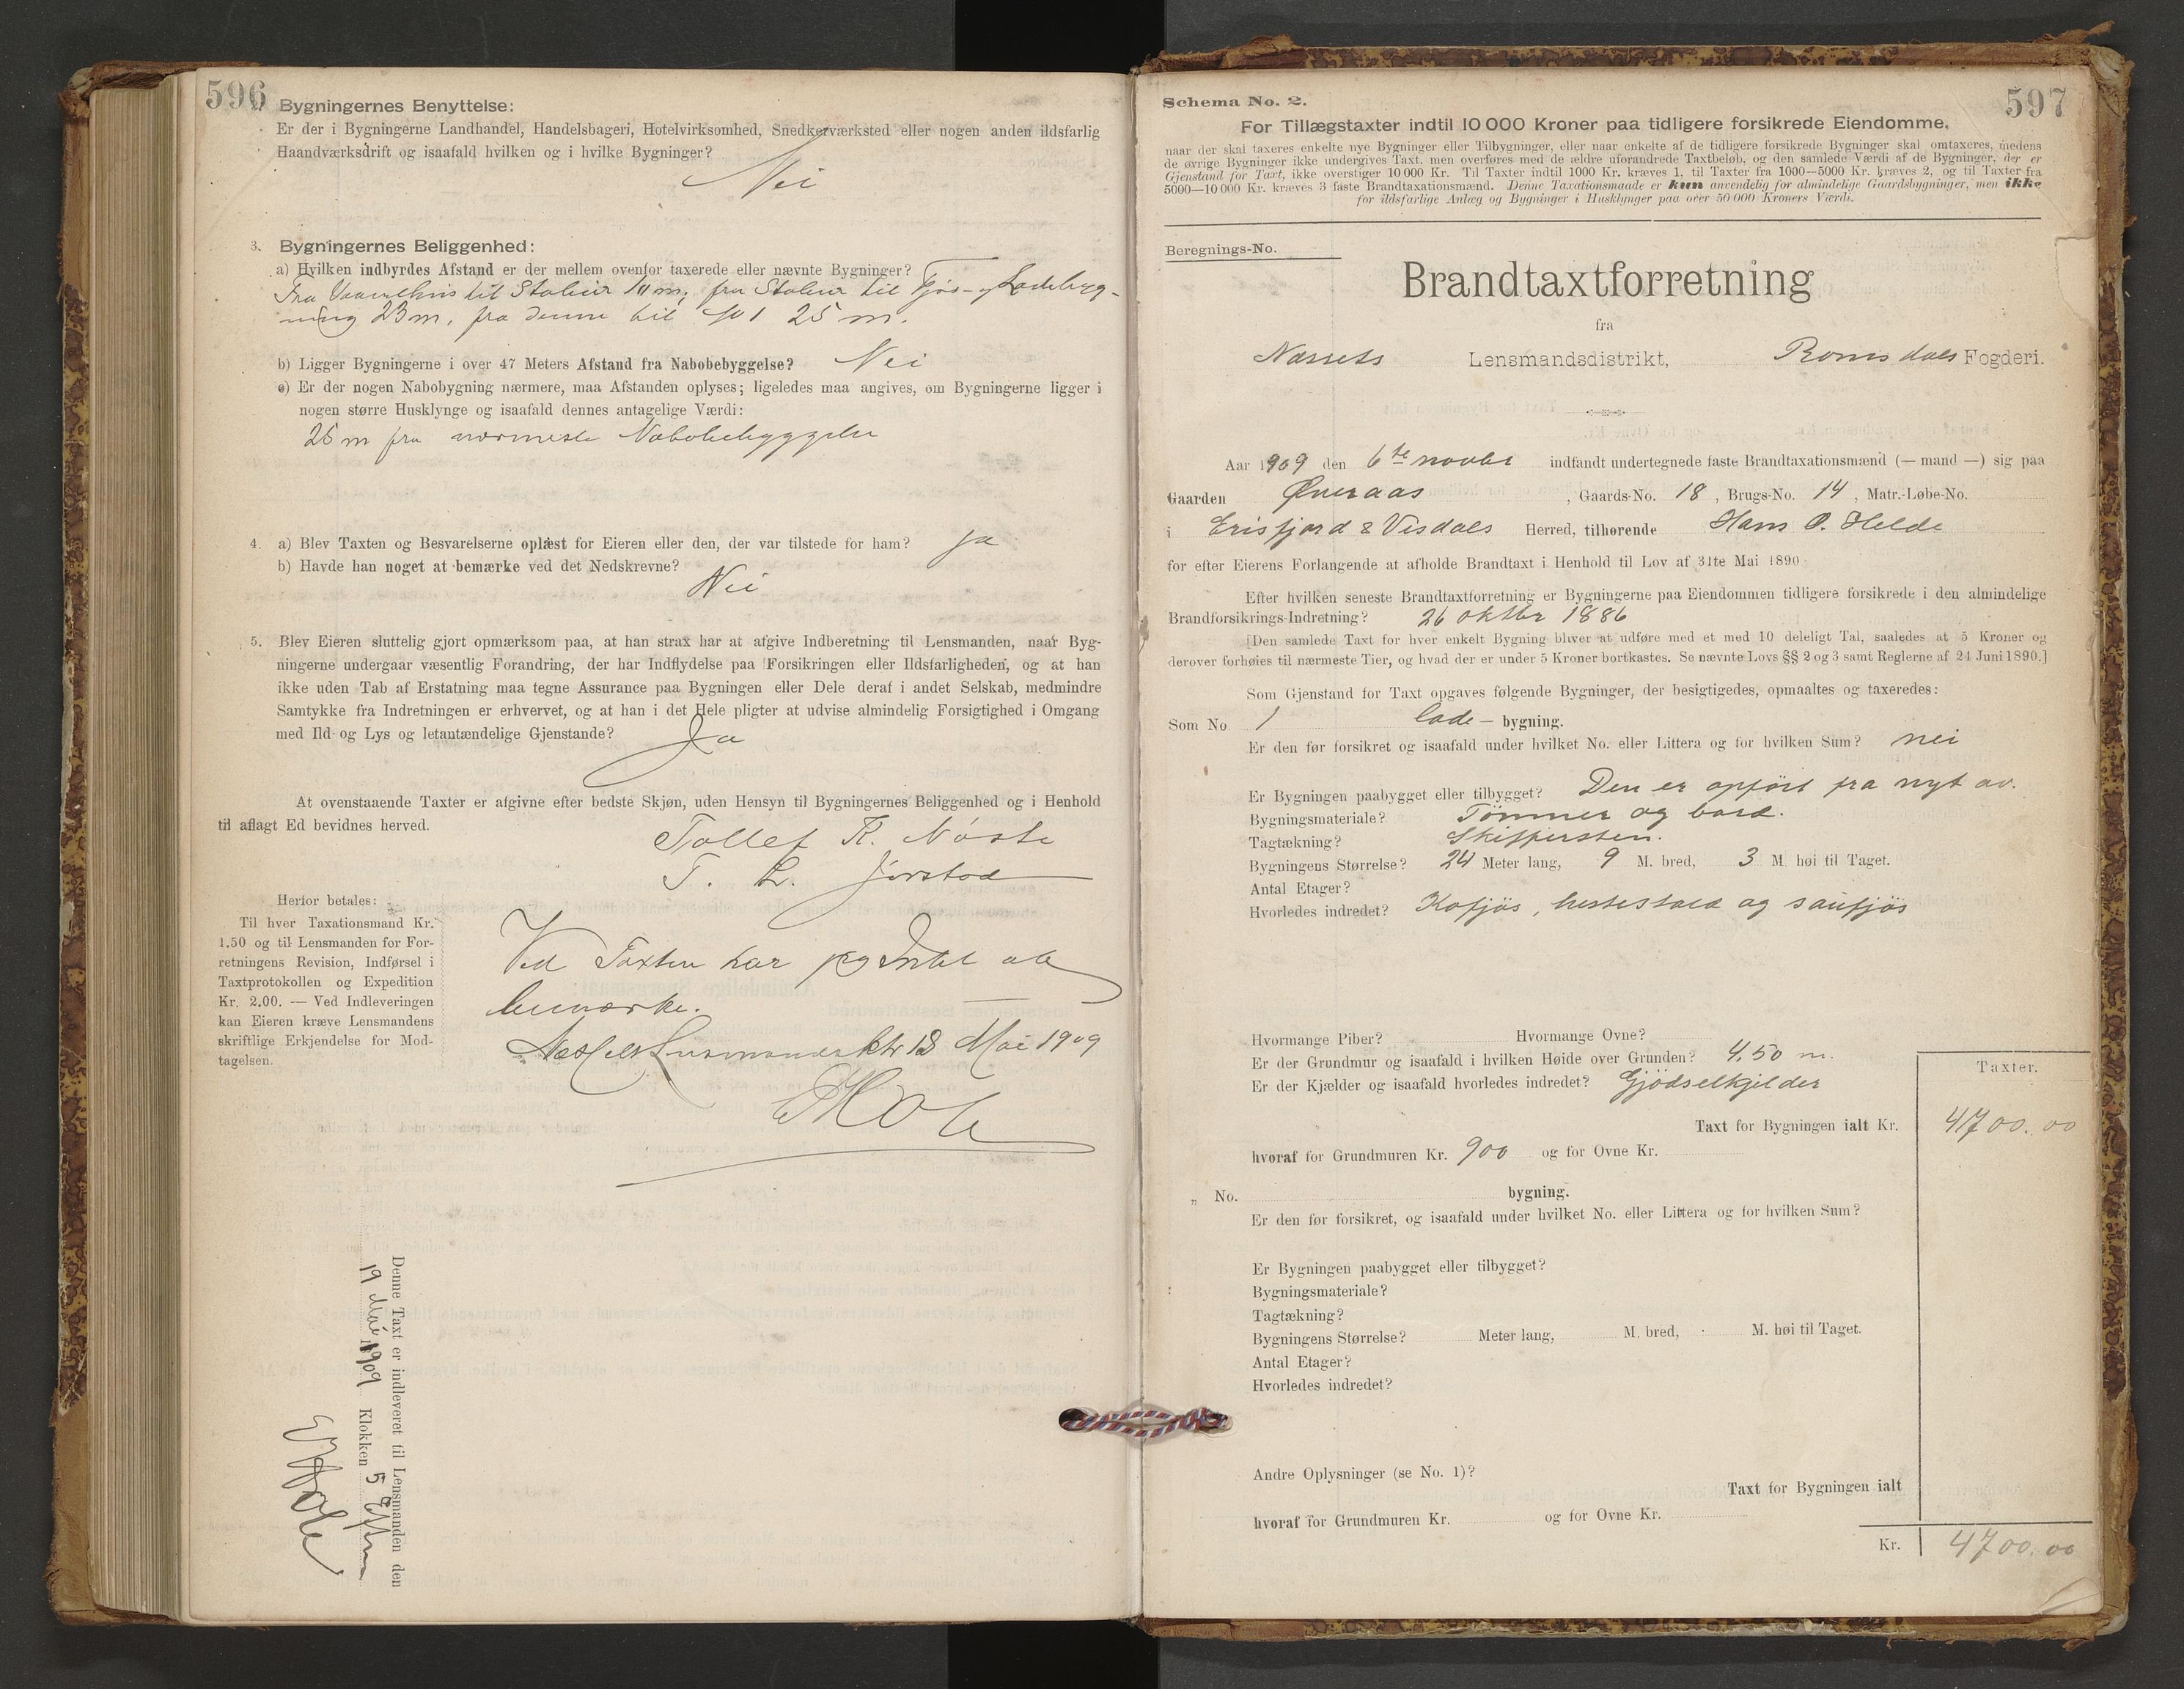 596
Bygningernes Benyttelse:
Er der i Bygningerne Landhandel, Handelsbageri, Hotelvirksomhed, Snedkerværksted eller nogen anden ildsfarlig
Haandværksdrift og isaafald hvilken og i hvilke Bygninger?
Nei
3. Bygningernes Beliggenhed:
a) Hvilken indbyrdes Afstand er der mellem ovenfor taxerede eller nævnte Bygninger?
Fra Vaanehus til Stabur 10 m, fra Stabur til Fjøs- og Ladebyg-
ning 23 m, fra denne til 25 m.
b) Ligger Bygningerne i over 47 Meters Afstand fra Nabobebyggelse? Nei
c) Er der nogen Nabobygning nærmere, maa Afstanden oplyses; ligeledes maa angives, om Bygningerne ligger i
nogen større Husklynge og isaafald dennes antagelige Værdi:
25 m fra nærmeste Nabobebyggelse
4. a) Blev Taxten og Besvarelserne oplæst for Eieren eller den, der var tilstede for ham? ja
b) Havde han noget at bemærke ved det Nedskrevne?
Nei
5. Blev Eieren sluttelig gjort opmærksom paa, at han strax har at afgive Indberetning til Lensmanden, naar Byg-
ningerne undergaar væsentlig Forandring, der har Indflydelse paa Forsikringen eller Ildsfarligheden, og at han
ikke uden Tab af Erstatning maa tegne Assurance paa Bygningen eller Dele deraf i andet Selskab, medmindre
Samtykke fra Indretningen er erhvervet, og at han i det Hele pligter at udvise almindelig Forsigtighed i Omgang
med Ild og Lys og letantændelige Gjenstande?
Ja
At ovenstaaende Taxter er afgivne efter bedste Skjøn, uden Hensyn til Bygningernes Beliggenhed og i Henhold
til aflagt Ed bevidnes herved.
Tollef K. Nøste
T. L. Jørstad
Herfor betales:
Til hver Taxationsmand Kr.
1.50 og til Lensmanden for For-
retningens Revision, Indførsel i
Taxtprotokollen og Expedition
Kr. 2.00. — Ved Indleveringen
kan Eieren kræve Lensmandens
skriftlige Erkjendelse for Mod-
tagelsen.
Ved Taxten har jeg Intet at
bemærke.
18 Mai 1909
Denne Taxt er indleveret til Lensmanden den
19 Mai 1909 Klokken 5 Eftm
Schema No. 2.
597
For Tillægstaxter indtil 10 000 Kroner paa tidligere forsikrede Eiendomme,
naar der skal taxeres enkelte nye Bygninger eller Tilbygninger, eller naar enkelte af de tidligere forsikrede Bygninger skal omtaxeres, medens
de øvrige Bygninger ikke undergives Taxt, men overføres med de ældre uforandrede Taxtbeløb, og den samlede Værdi af de Bygninger, der er
Gjenstand for Taxt, ikke overstiger 10 000 Kr. Til Taxter indtil 1000 Kr. kræves 1, til Taxter fra 1000—5000 Kr. kræves 2, og til Taxter fra
5000—10 000 Kr. kræves 3 faste Brandtaxationsmænd. Denne Taxationsmaade er kun anvendelig for almindelige Gaardsbygninger, men ikke
for ildsfarlige Anlæg og Bygninger i Husklynger paa over 50 000 Kroners Værdi.
Beregnings-No.
Brandtaxtforretning
fra
Næssets Lensmandsdistrikt, Romsdals Fogderi.
Aar 1909 den 6te novbr indfandt undertegnede faste Brandtaxationsmænd (— mand —) sig paa
Gaarden Øveraas, Gaards-No. 18, Brugs-No. 14, Matr.-Løbe-No.
i Erisfjord & Visdals Herred, tilhørende Hans O. Helde
for efter Eierens Forlangende at afholde Brandtaxt i Henhold til Lov af 31te Mai 1890
Efter hvilken seneste Brandtaxtforretning er Bygningerne paa Eiendommen tidligere forsikrede i den almindelige
Brandforsikrings-Indretning? 26 oktbr 1886
[Den samlede Taxt for hver enkelt Bygning bliver at udføre med et med 10 deleligt Tal, saaledes at 5 Kroner og
derover forhøies til nærmeste Tier, og hvad der er under 5 Kroner bortkastes. Se nævnte Lovs §§ 2 og 3 samt Reglerne af 24 Juni 1890.]
Som Gjenstand for Taxt opgaves følgende Bygninger, der besigtigedes, opmaaltes og taxeredes:
Som No 1 lade - bygning.
Er den før forsikret og isaafald under hvilket No. eller Littera og for hvilken Sum? nei
Er Bygningen paabygget eller tilbygget? Den er opført fra nyt av.
Bygningsmateriale? Tømmer og bord.
Tagtækning? Skiffersten.
Bygningens Størrelse? 24 Meter lang, 9 M. bred, 3 M. høi til Taget.
Antal Etager?
Hvorledes indredet? Kofjös, hestestald og saufjös
Hvormange Piber? Hvormange Ovne?
Er der Grundmur og isaafald i hvilken Høide over Grunden? 4.50 m.
Er der Kjælder og isaafald hvorledes indredet? Gjödselkjelder
Taxter.
Taxt for Bygningen ialt Kr. 4700.00
hvoraf for Grundmuren Kr. 900 og for Ovne Kr.
„ No. bygning.
Er den før forsikret, og isaafald under hvilket No. eller Littera og for hvilken Sum?
Er Bygningen paabygget eller tilbygget?
Bygningsmateriale?
Tagtækning?
Bygningens Størrelse? Meter lang, M. bred, M. høi til Taget.
Antal Etager?
Hvorledes indredet?
Andre Oplysninger (se No. 1)?
Taxt for Bygningen ialt
hvoraf for Grundmuren Kr. og for Ovne Kr.
Kr. 4700.00